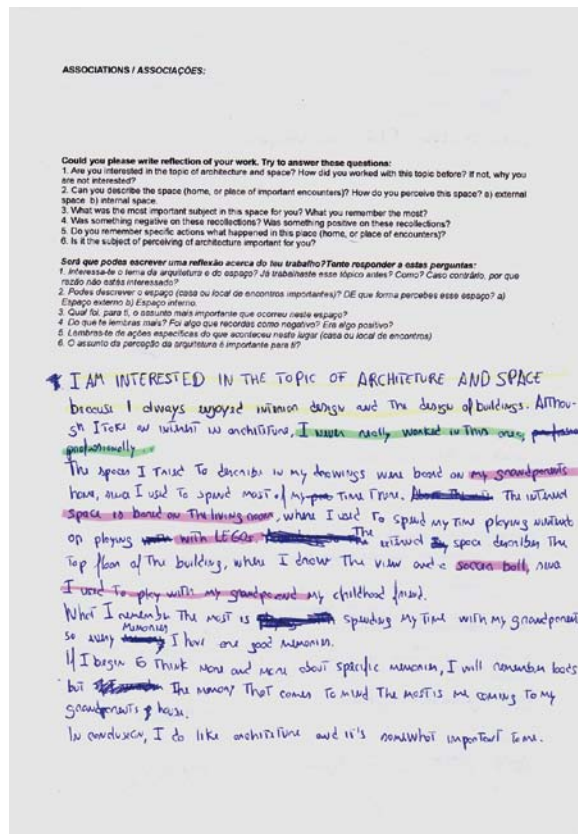 ASSOCIATIONS / ASSOCIAÇÕES:
Could you please write reflection of your work. Try to answer these questions:
1. Are you interested in the topic of architecture and space? How did you worked with this topic before? If not, why you
are not interested?
2. Can you describe the space (home, or place of important encounters)? How do you perceive this space? a) external
space b) internal space.
3. What was the most important subject in this space for you? What you remember the most?
4. Was something negative on these recollections? Was something positive on these recollections?
5. Do you remember specific actions what happened in this place (home, or place of encounters)?
6. Is it the subject of perceiving of architecture important for you?
Será que podes escrever uma reflexão acerca do teu trabalho?Tante responder a estas perguntas:
1. Interessa-te o tema da arquitetura e do espaço? Já trabalhaste esse tópico antes? Como? Caso contrário, por que
razão não estás interessado?
2. Podes descrever o espaço (casa ou local de encontros importantes)? DE que forma percebes esse espaço? a)
Espaço externo b) Espaço interno.
3. Qual foi, para ti, o assunto mais importante que ocorreu neste espaço?
4 Do que te lembras mais? Foi algo que recordas como negativo? Era algo positivo?
5. Lembras-te de ações específicas do que aconteceu neste lugar (casa ou local de encontros)
6. O assunto da perceção da arquitetura é importante para ti?
I AM INTERESTED IN THE TOPIC OF ARCHITETURE AND SPACE
because I always enjoyed interior design and the design of buildings. Althou-
gh I take an interest in architeture, I never really worked in this ones,
profissionally.
The spaces I tried to describe in my drawings were based on my grandparents
house, since I used to spend most of my time there. The internal
space is based on the living room, where I used to spend my time playing nintendo
or playing with LEGOs. The external space describes the
top floor of the building, where I draw the view and a soccer ball, since
I used to play with my grandpa and my childhood friend.
What I remember the most is spending my time with my grandparents
so every memories I have are good memories.
If I begin to think more and more about specific memories, I will remember loads
but the memory that comes to mind the most is me coming to my
grandparents house.
In conclusion, I do like architeture and it's somewhat important to me.